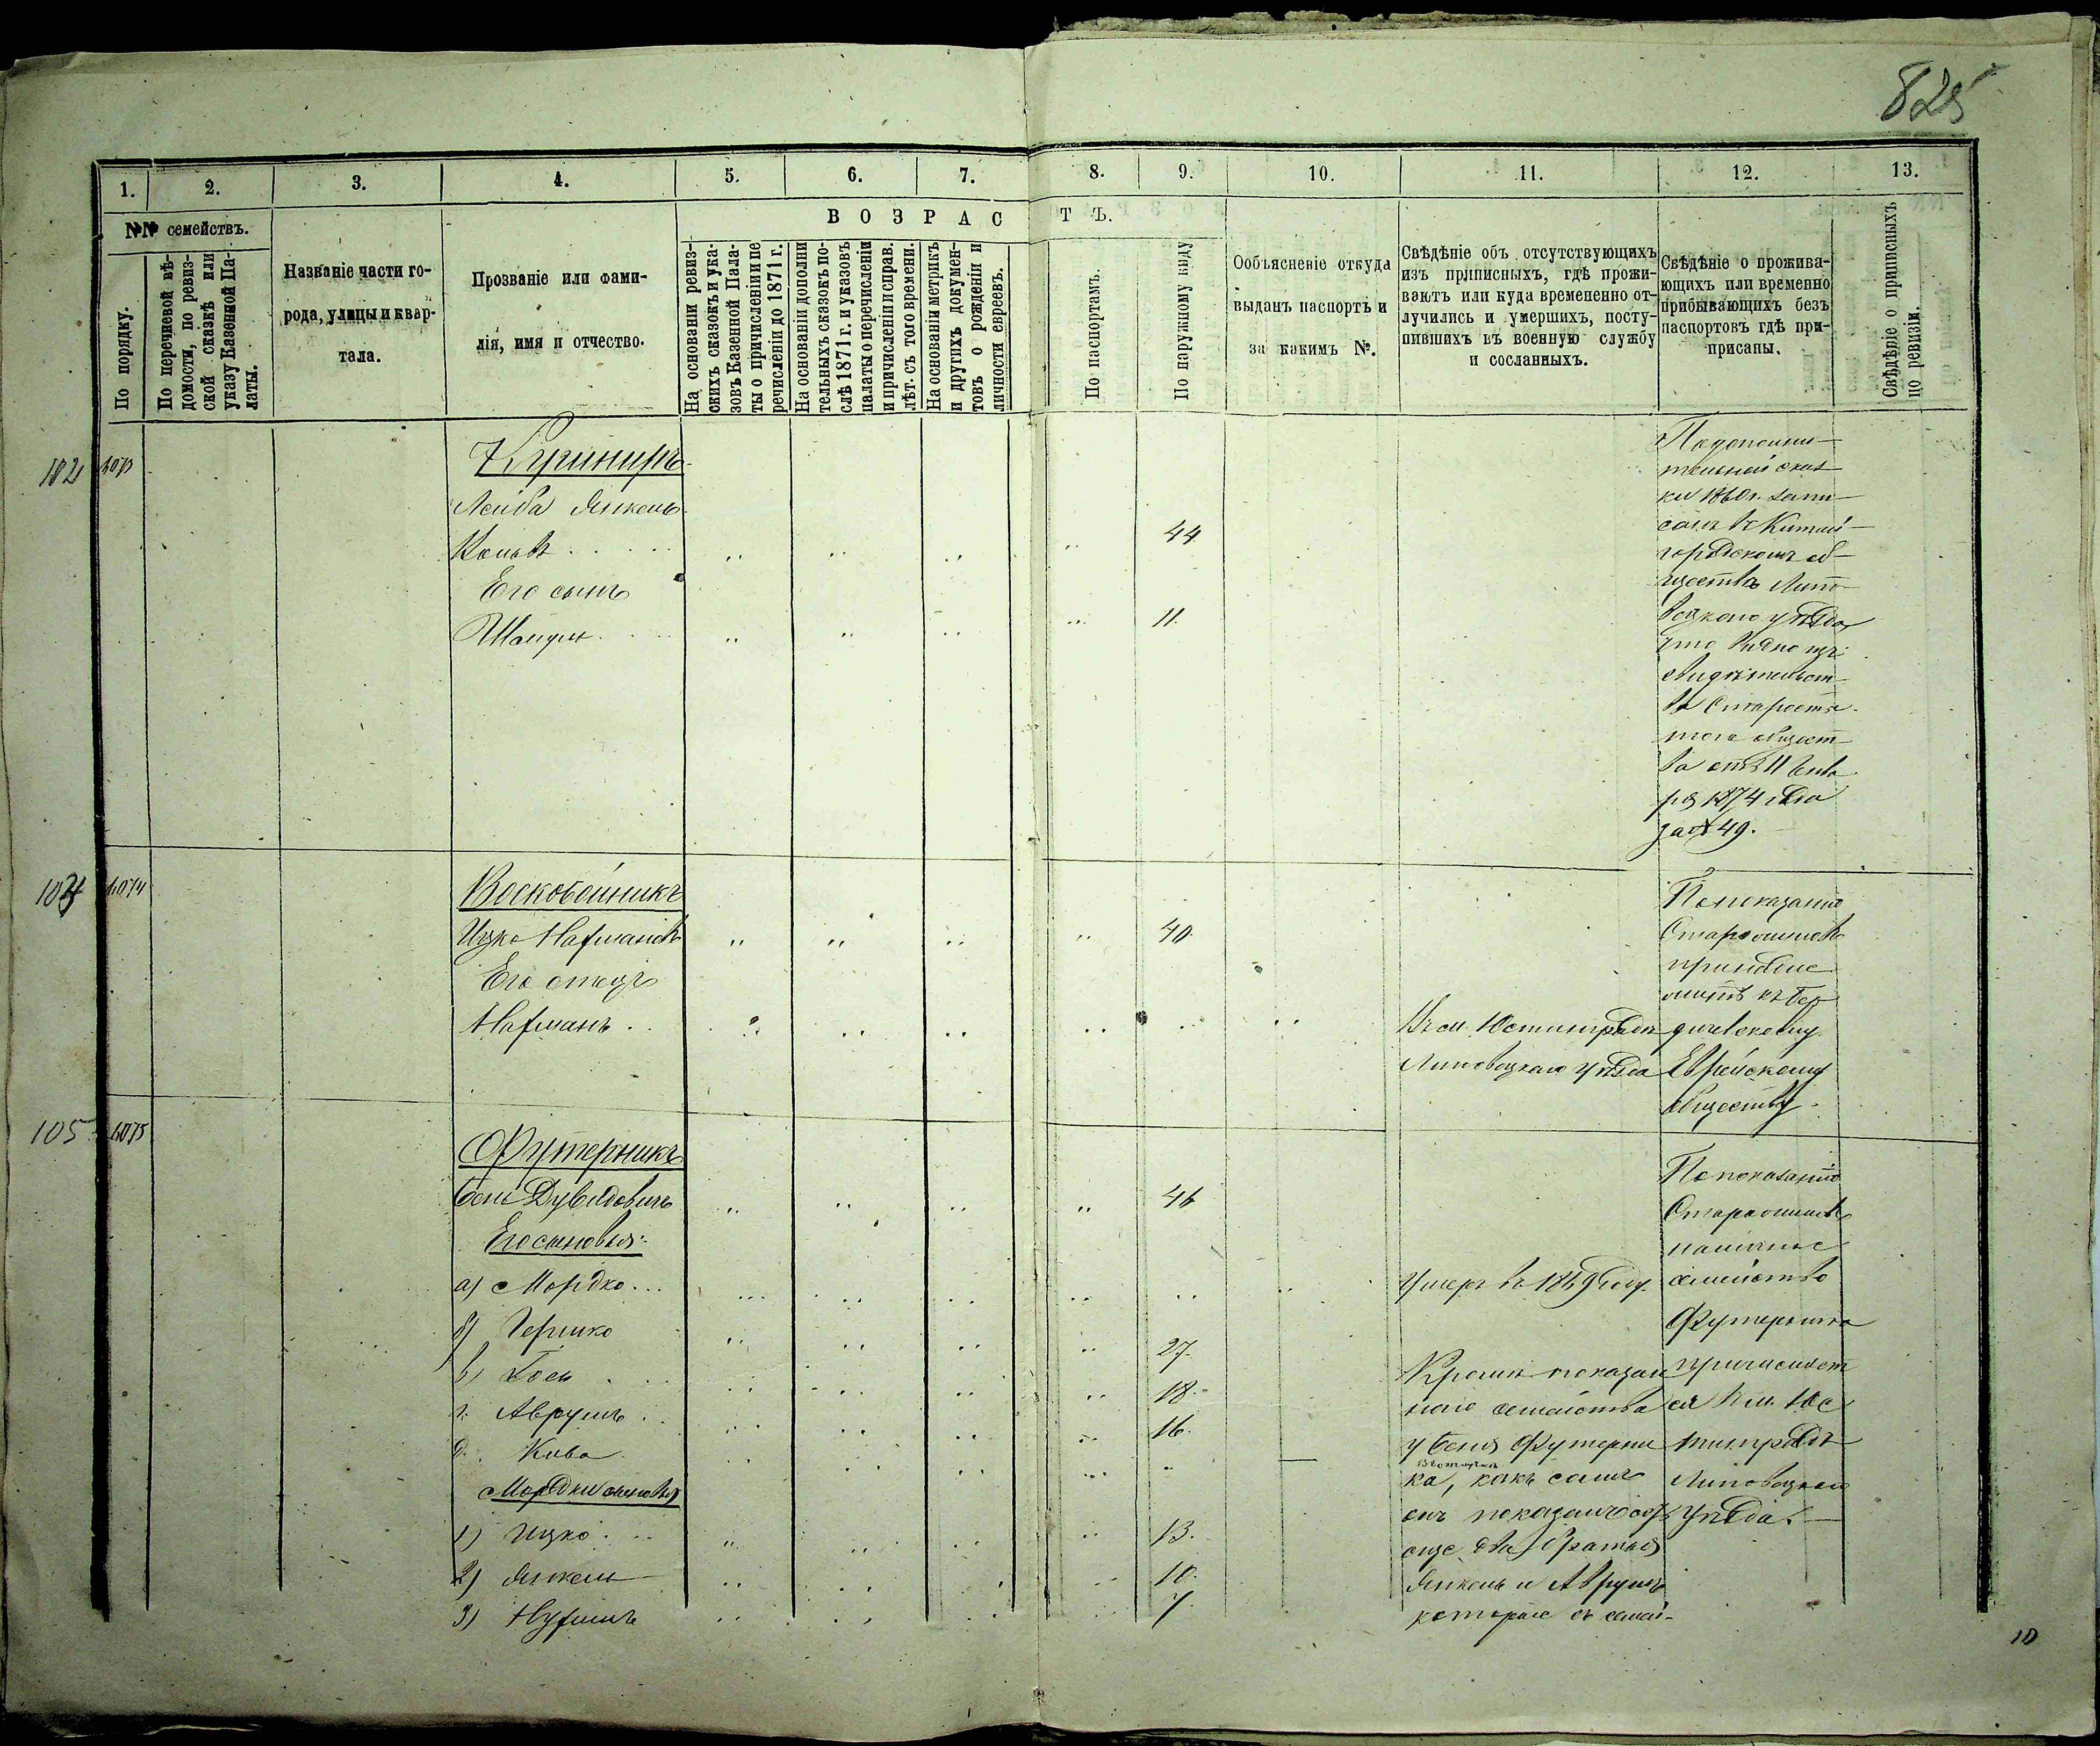 825
1. 2. 3. 4. 5. 6. 7. 8. 9. 10. 11. 12. 13.
№№ семействъ.
ВОЗРАСТЪ.
По порядку.
По перечневой вѣ-
домости, по ревиз-
ской сказкѣ или
указу Казенной Па-
латы.
Названіе части го-
рода, улицы и квар-
тала.
Прозваніе или фами-
лія, имя и отчество.
На основаніи ревиз-
скихъ сказокъ и ука-
зовъ Казенной Пала-
ты о причисленіи и пе
речисленіи до 1871 г.
На основаніи дополни
тельныхъ сказокъ по-
слѣ 1871 г. и указовъ
палаты о перечисленіи
и причисленіи и справ.
лѣт. съ того времени.
На основаніи метрикъ
и другихъ докумен-
товъ о рожденіи и
личности евреевъ.
По паспортамъ.
По наружному виду
Ообъясненіе откуда
выданъ паспортъ и
за какимъ №.
Свѣдѣніе объ отсутствующихъ
изъ приписныхъ, гдѣ прожи-
ваютъ или куда временено от-
лучились и умершихъ, посту-
пившихъ въ военную службу
и сосланныхъ.
Свѣдѣніе о прожива-
ющихъ или временно
прибывающихъ безъ
паспортовъ гдѣ при-
писаны.
Свѣдѣніе о приписныхъ
по ревизіи.
102
Лейба Янкель
44
Его сынъ
11.
По дополни-
тельной сказ-
ки 1860 г. запи-
санъ въ Китай-
городскомъ об-
щества Липо-
вецкаго уѣзда,
что видно изъ
свидѣтельст-
ва Старосты
того общест-
ва отъ 11 Янва
ря 1874 года
за № 49.
Воскобойникъ
Ицко Нахмановъ 40.
Его отецъ
Нахманъ
Въ м. Юстинградѣ
Липовецкаго уѣзда
По показанію
Старшинъ
принадле
житъ къ Бер
дичевскому
Еврейскому
обществу.
105
Футерникъ
Беня Дувидовичъ 46
Его сыновья:
а) Мордко... Умеръ въ 1869 году.
б) Гершко 27.
в) Іось 18.
г. Аврумъ 16.
д. Кива
Мордки сыновья
1) Ицко 13.
2) Янкель 10.
3) Нухимъ 7.
Кромѣ показан
наго семейства
у Беня Футерни
ка, какъ самъ
онъ показалъ есть
еще два братья
Янкель и Аврумъ
которые съ семей-
По показанію
Старшинъ
семейство
Футерника
причисляет
ся къ м. Юс
тинградъ
Липовецкаго
уѣзда.
10